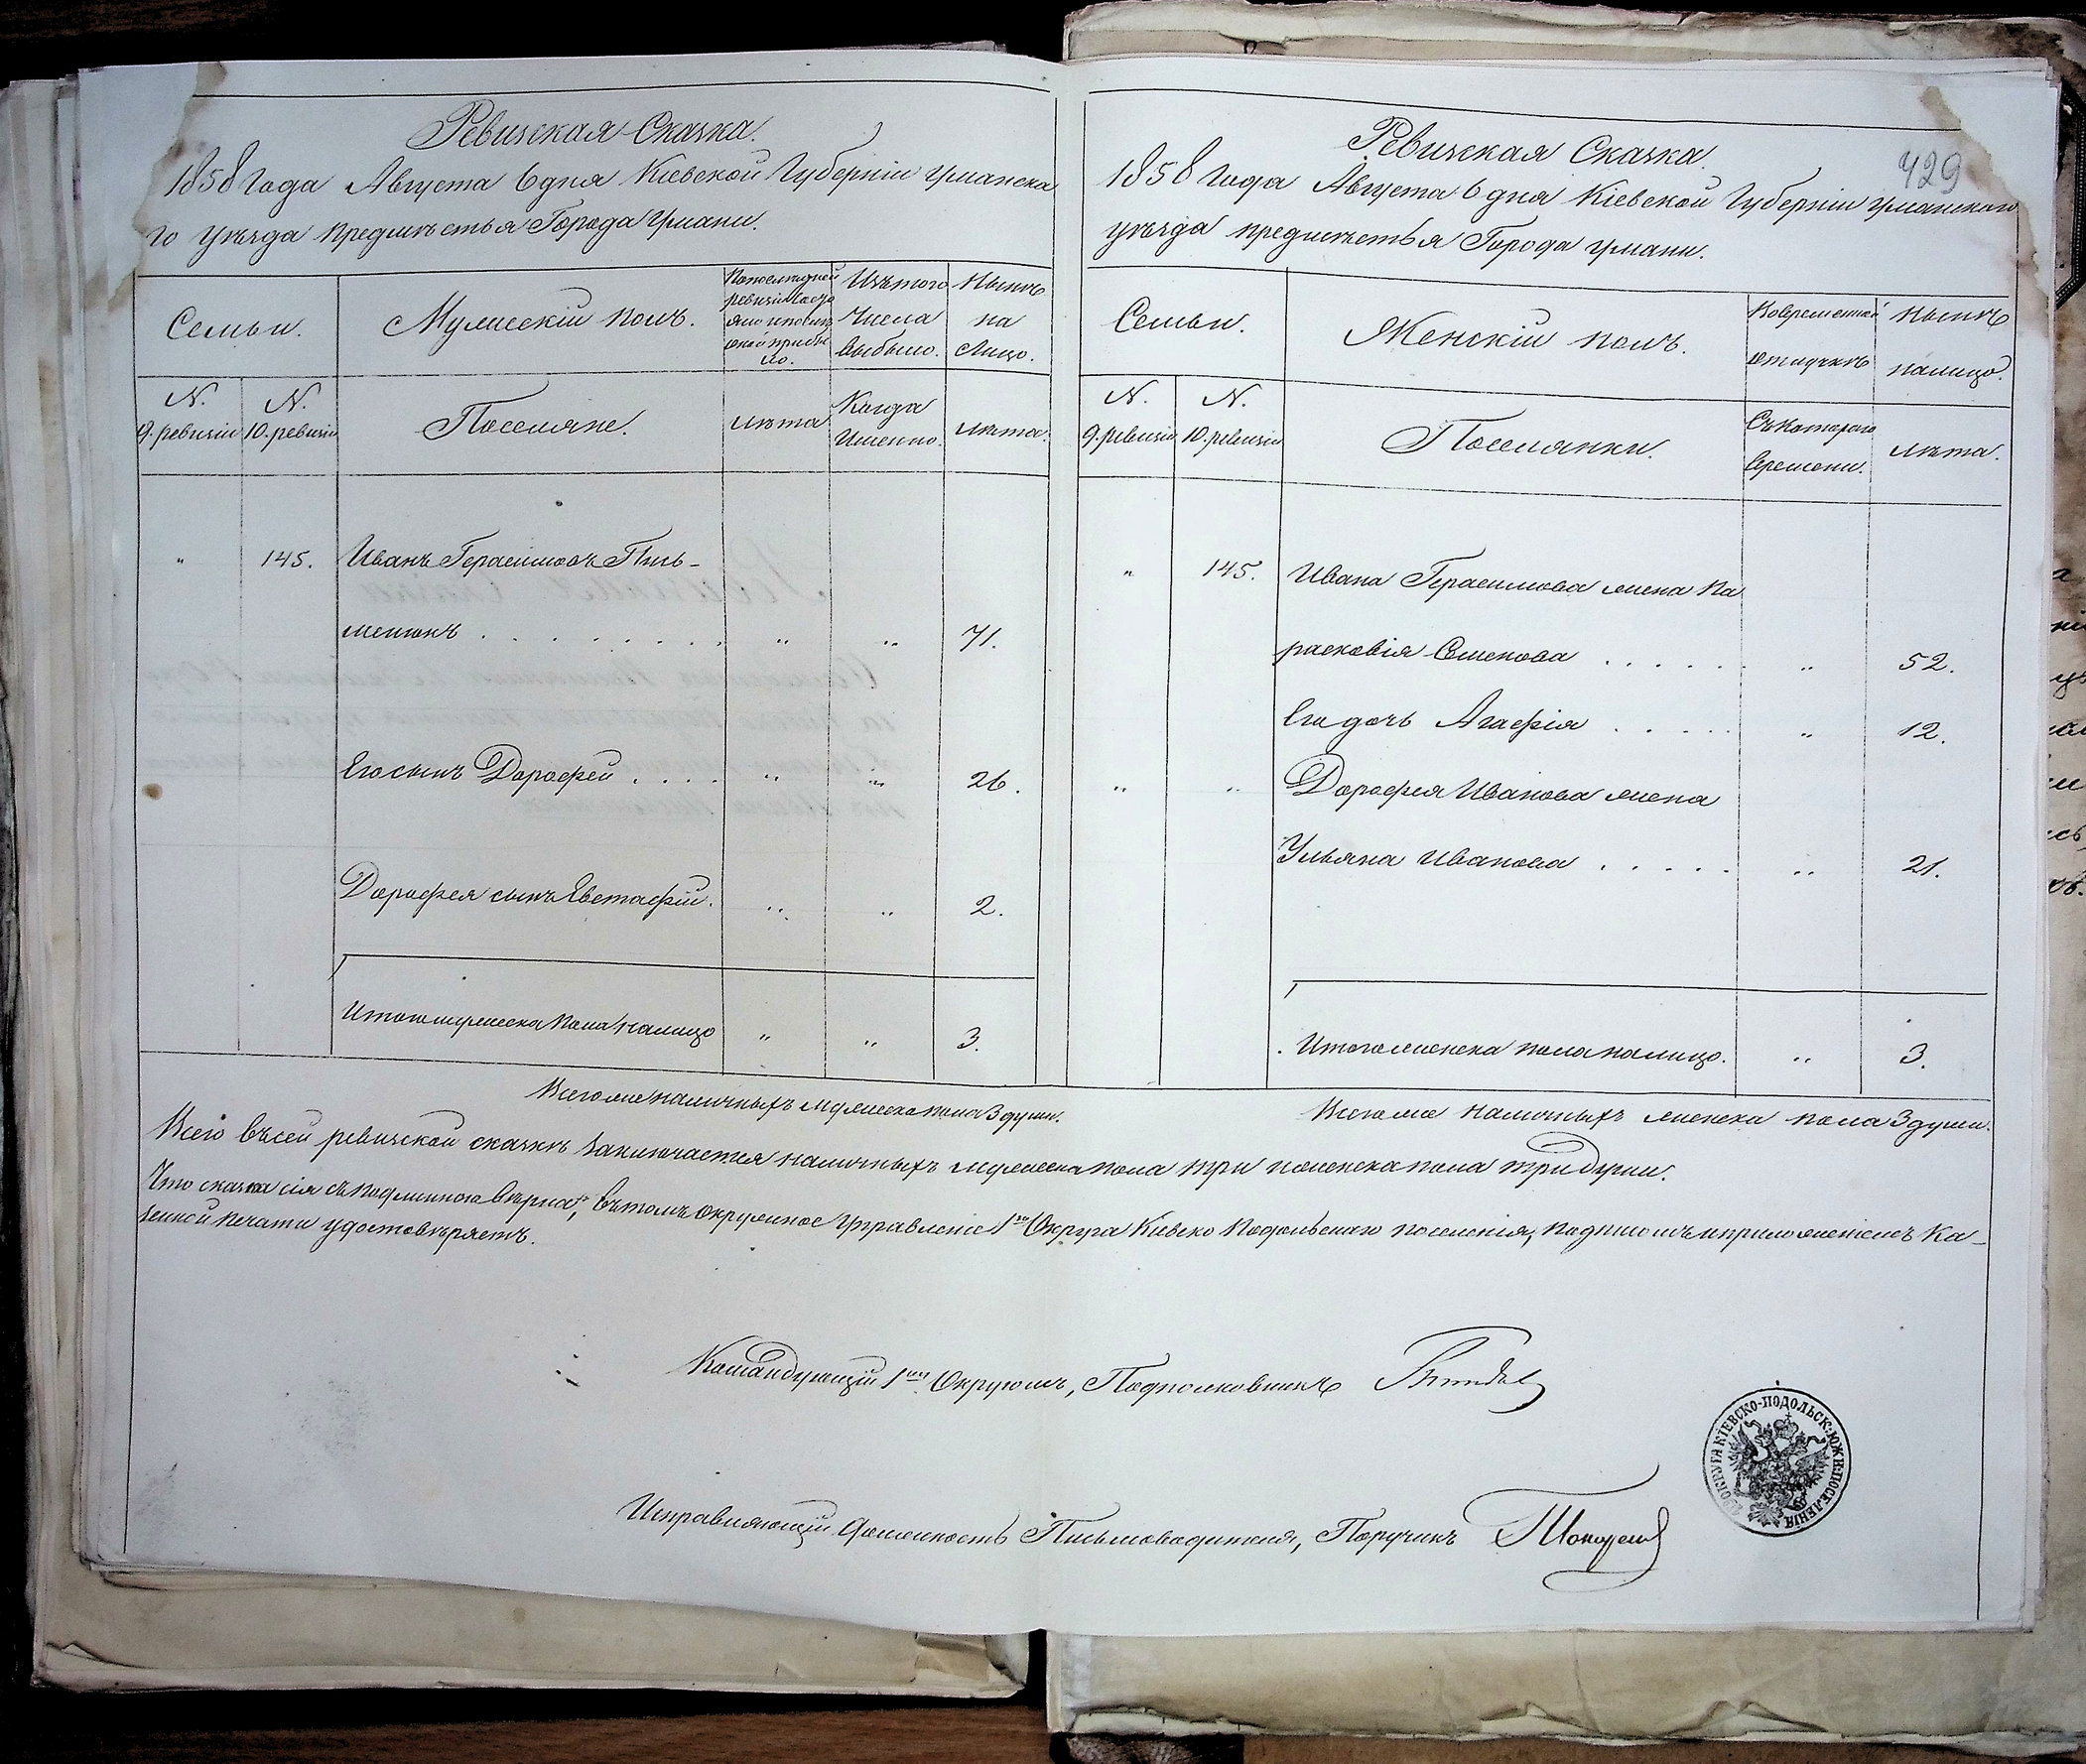 Ревизская Сказка.
1858 года Августа 6 дня Кіевской Губерніи Уманска
го уѣзда предмѣстья Города Умани.
Семьи.
Мужескій полъ.
По последней
ревизіи состо
яло и после
оной прибы
ло.
Изъ того
числа
выбыло.
Нынѣ
на
лицо.
N.
9. ревизіи
N.
10. ревизіи
Поселяне.
лѣта
Когда
именно.
лѣта.
" 145. Иванъ Герасимовъ Пись-
менюкъ . . . . . . . . . " " 71.
Его сынъ Дорофей . . . . " " 26.
Дорофея сынъ Евстафій. " " 2.
Итого мужеска пола налицо " " 3.
Всего же наличныхъ мужеска пола 3 души.
Ревизская Сказка.
429
1858 года Августа 6 дня Кіевской Губерніи Уманскаго
уѣзда предмѣстья Города Умани.
Семьи.
Женскій полъ.
Во временной
отлучкѣ
Нынѣ
налицо.
N.
9. ревизіи
N.
10. ревизіи
Поселянки.
Съ котораго
времени.
лѣта.
" 145. Ивана Герасимова жена Па
расковія Семенова . . . . . . " 52.
Его дочь Агафія . . . . . " 12.
" " Дорофея Иванова жена
Ульяна Иванова . . . . . " 21.
Итого женска пола налицо. " 3.
Всего же наличныхъ женска пола 3 души.
Всего въ сей ревизской сказкѣ заключается наличныхъ мужеска пола три и женска пола три души.
Что сказка сія съ подлинною вѣрна, въ томъ Окружное Управленіе 1го Округа Кіевско Подольскаго поселенія, подписомъ и приложеніемъ Ка-
зенной печати удостовѣряетъ.
Командующій 1мъ Округомъ, Подполковникъ
Исправляющій должность Письмоводителя, Поручикъ
ОКРУГА КІЕВСКО-ПОДОЛЬСК: ЮЖН: ПОСЕЛЕНІЯ